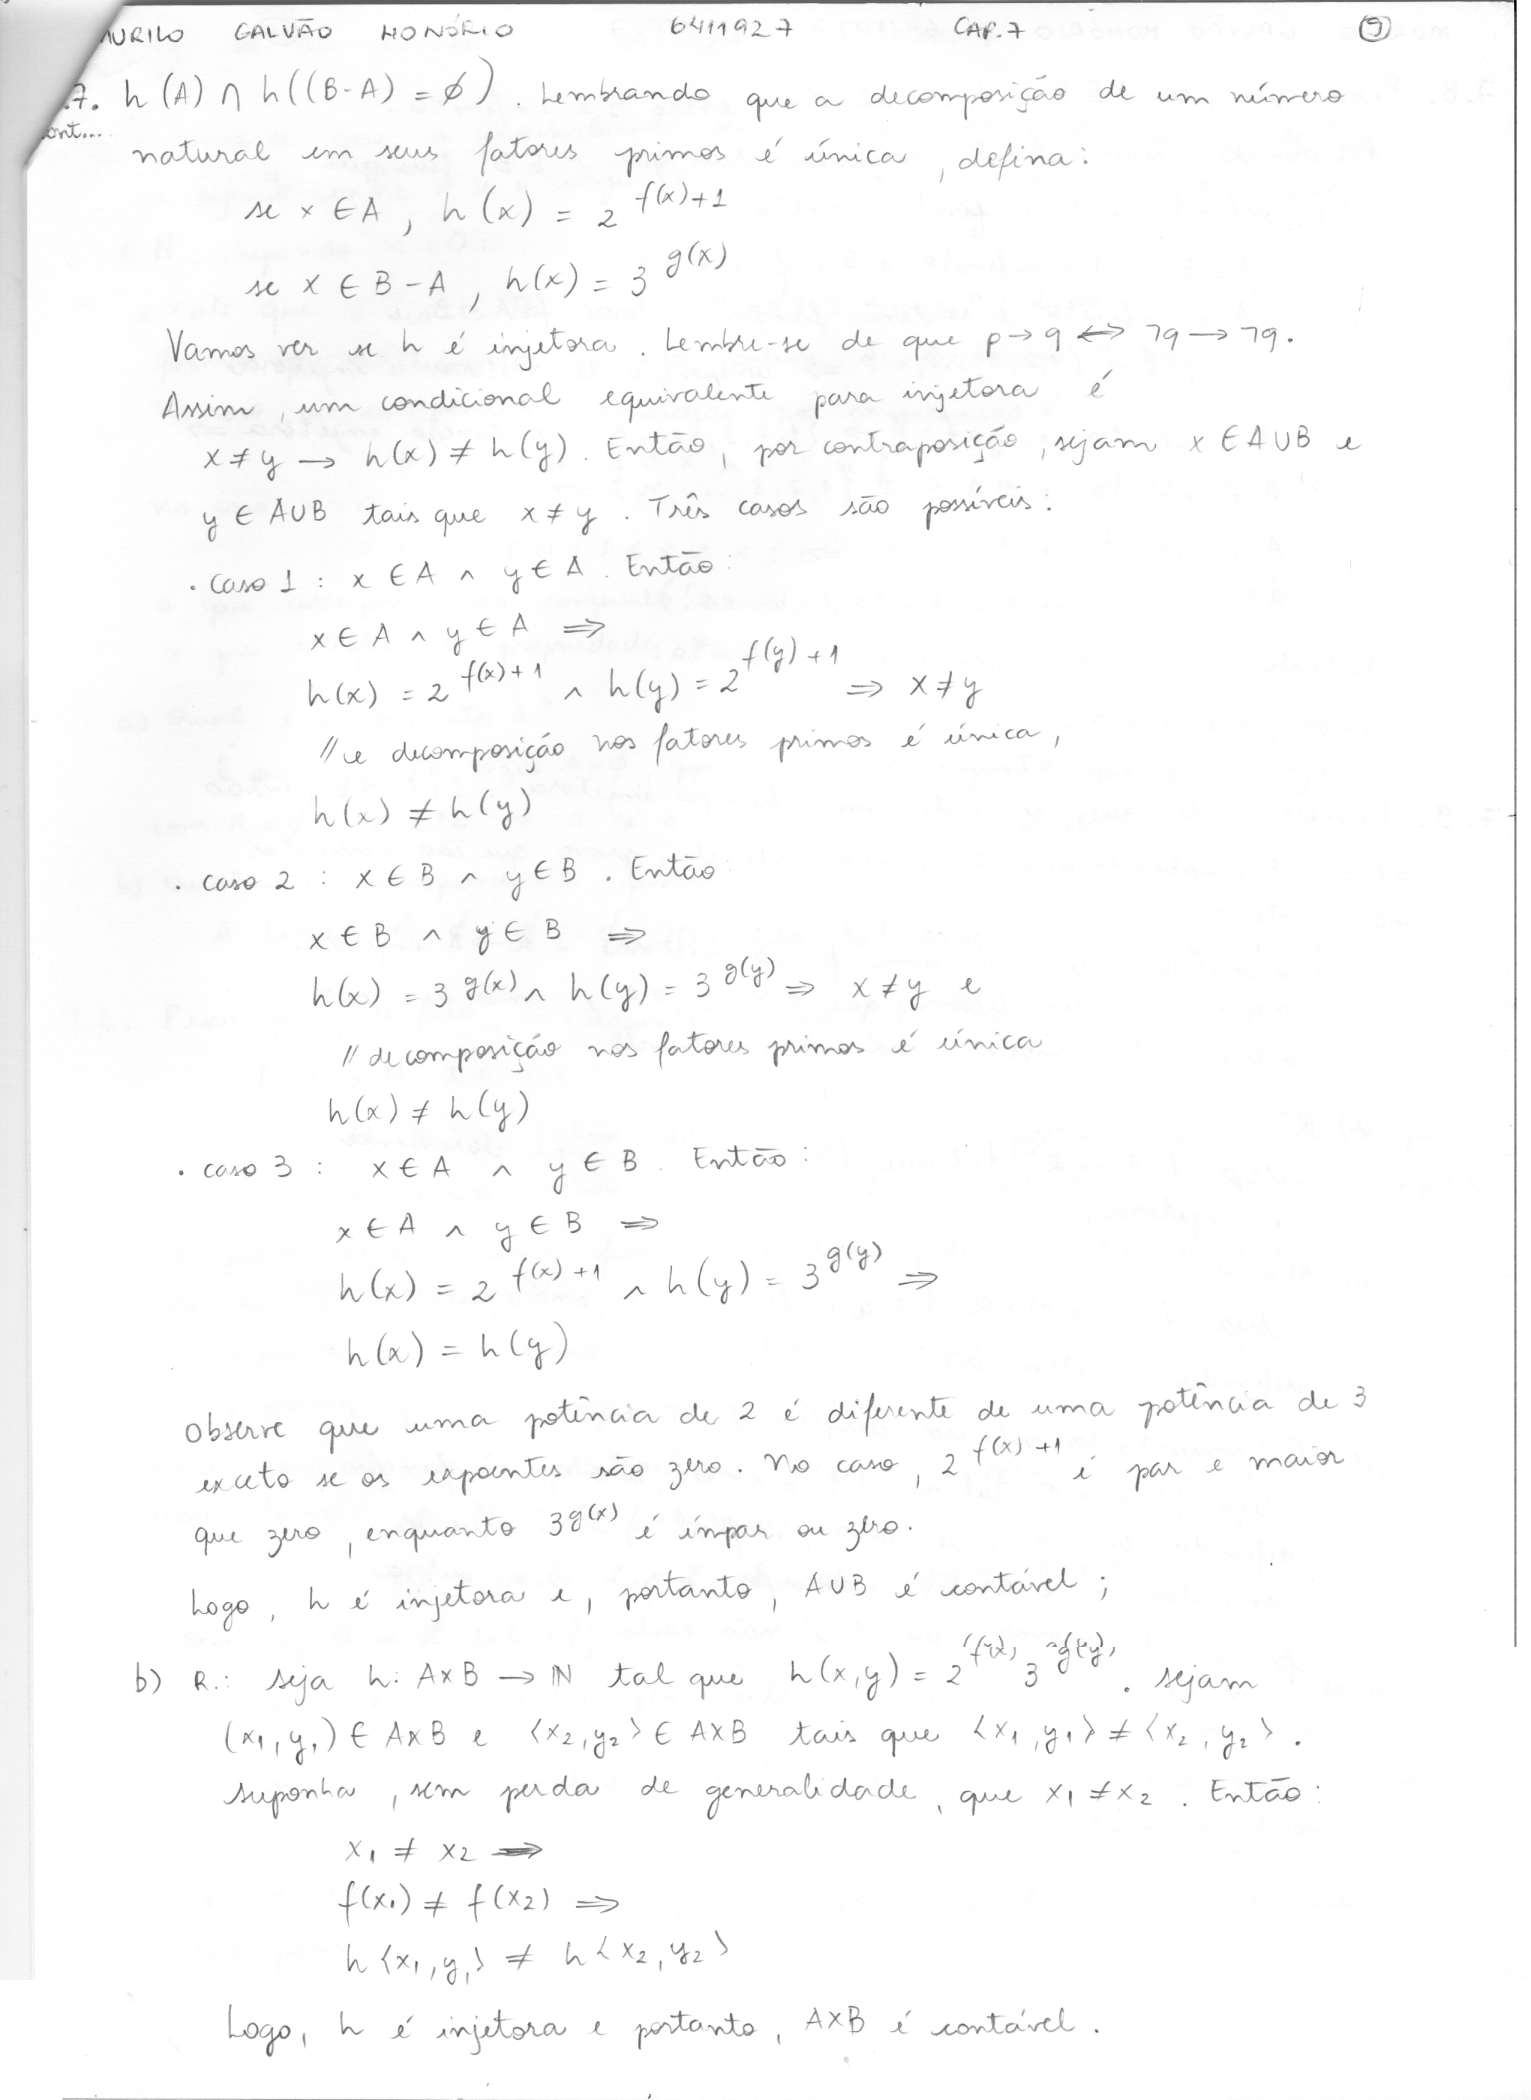 MURILO GALVÃO HONÓRIO 6411927 CAP.7 9
.7. h(A) ∩ h((B-A) = ∅). Lembrando que a decomposição de um número
cont...
natural em seus fatores primos é única, defina:
se x ∈ A, h(x) = 2^{f(x)+1}
se x ∈ B-A, h(x) = 3^{g(x)}
Vamos ver se h é injetora. Lembre-se de que p → q ↔ ¬q → ¬q.
Assim, um condicional equivalente para injetora é
x ≠ y → h(x) ≠ h(y). Então, por contraposição, sejam x ∈ A∪B e
y ∈ A∪B tais que x ≠ y. Três casos são possíveis:
· Caso 1 : x ∈ A ∧ y ∈ A. Então:
x ∈ A ∧ y ∈ A ⇒
h(x) = 2^{f(x)+1} ∧ h(y) = 2^{f(y)+1} ⇒ x ≠ y
// e decomposição nos fatores primos é única,
h(x) ≠ h(y)
· caso 2 : x ∈ B ∧ y ∈ B. Então
x ∈ B ∧ y ∈ B ⇒
h(x) = 3^{g(x)} ∧ h(y) = 3^{g(y)} ⇒ x ≠ y e
// decomposição nos fatores primos é única
h(x) ≠ h(y)
· caso 3 : x ∈ A ∧ y ∈ B. Então:
x ∈ A ∧ y ∈ B ⇒
h(x) = 2^{f(x)+1} ∧ h(y) = 3^{g(y)} ⇒
h(x) = h(y)
Observe que uma potência de 2 é diferente de uma potência de 3
exceto se os expoentes são zero. No caso, 2^{f(x)+1} é par e maior
que zero, enquanto 3^{g(x)} é ímpar ou zero.
Logo, h é injetora e, portanto, A∪B é contável;
b) R.: seja h: A×B → ℕ tal que h(x,y) = 2^{f(x)} 3^{g(y)}. sejam
(x₁,y₁) ∈ A×B e ⟨x₂,y₂⟩ ∈ A×B tais que ⟨x₁,y₁⟩ ≠ ⟨x₂,y₂⟩.
suponha, sem perda de generalidade, que x₁ ≠ x₂. Então:
x₁ ≠ x₂ ⇒
f(x₁) ≠ f(x₂) ⇒
h⟨x₁,y₁⟩ ≠ h⟨x₂,y₂⟩
Logo, h é injetora e portanto, A×B é contável.